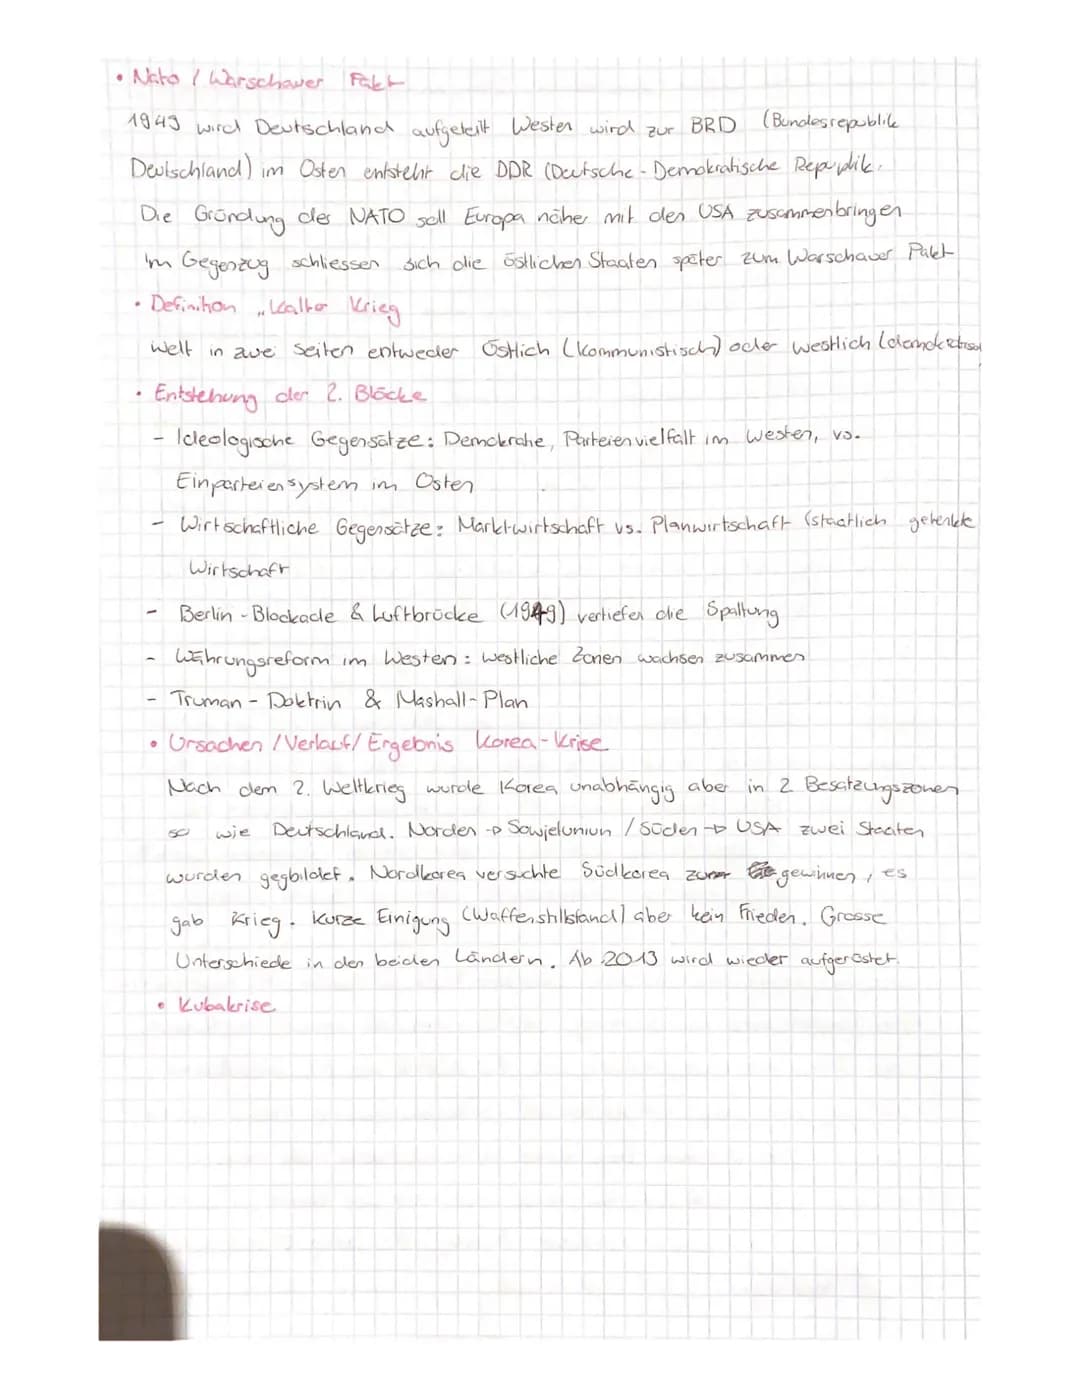 • Nato / Warschauer Pakt
1949 wird Deutschland aufgeteilt Westen wird zur BRD (Bundesrepublik
Deutschland) im Osten entsteht die DDR (Deutsche-Demokratische Republik.
Die Gründung des NATO soll Europa näher mit den USA zusammenbringen
im Gegenzug schliessen sich die östlichen Staaten später zum Warschauer Pakt
• Definition „Kalter Krieg
Welt in zwei Seiten entweder Östlich (kommunistisch) oder westlich (demokratisch
• Entstehung der 2. Blöcke
- Ideologische Gegensätze: Demokratie, Parteienvielfalt im Westen, vs.
Einparteiensystem im Osten
- Wirtschaftliche Gegensätze: Marktwirtschaft vs. Planwirtschaft (staatlich gelenkte
Wirtschaft
- Berlin-Blockade & Luftbrücke (1949) vertiefen die Spaltung
- Währungsreform im Westen: westliche Zonen wachsen zusammen
- Truman-Doktrin & Mashall-Plan
• Ursachen / Verlauf/ Ergebnis Korea-Krise
Nach dem 2. Weltkrieg wurde Korea unabhängig aber in 2 Besatzungszonen
so wie Deutschland. Norden → Sowjetuniun / Süden → USA zwei Staaten
wurden gegbildet. Nordkorea versuchte Südkorea zu gewinnen, es
gab Krieg. Kurze Einigung (Waffenstillstand) aber kein Frieden. Grosse
Unterschiede in den beiden Ländern. Ab 2013 wird wieder aufgerüstet.
• Kubakrise